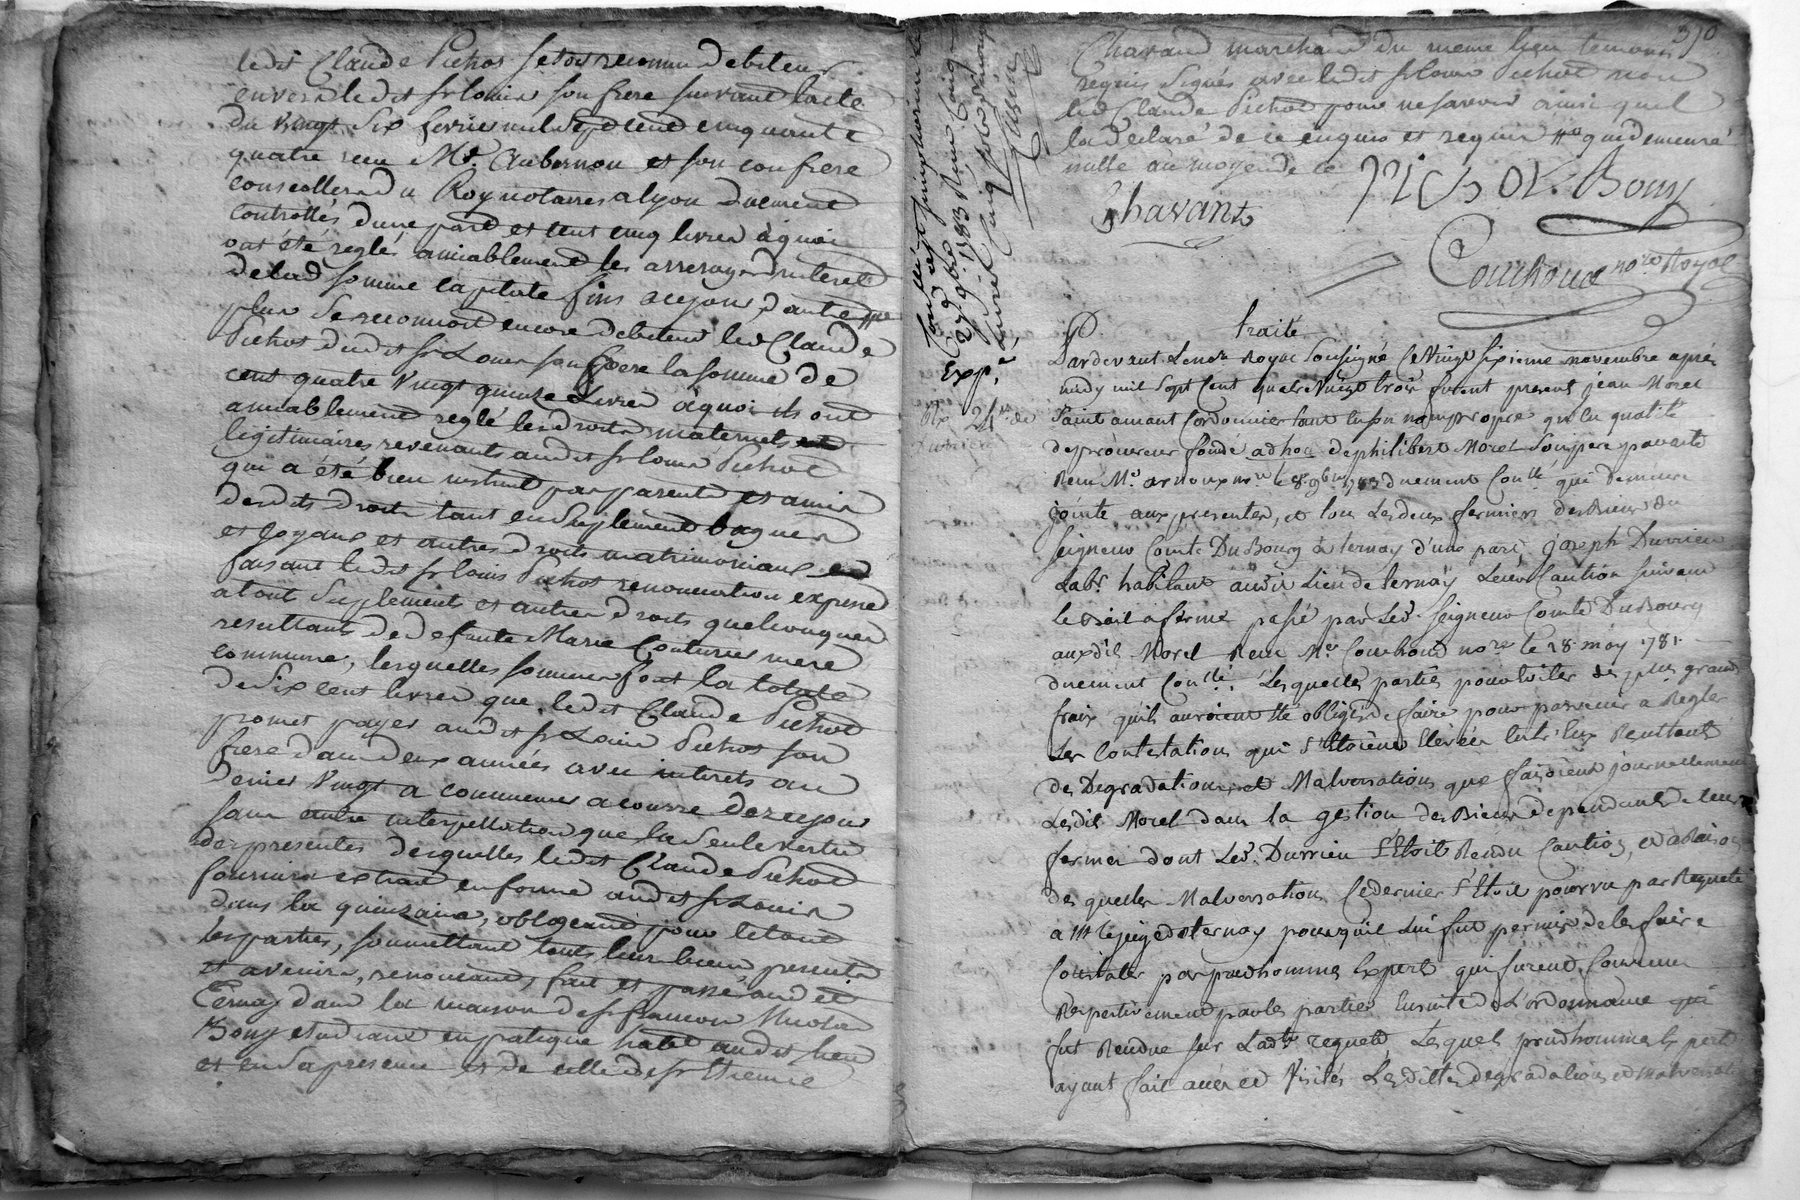 ledit Claude Pichot se soit reconnu debiteur
envers ledit sr louis son frere suivant lacte
du vingt six fevrier mil sept cent cinquante
quatre recu Me. Aubernon et son confrere
conseillers du Roy notaires a lyon duement
controllés d'une part et cent cinq livres a quoi
ont été reglés amiablement les arrerages d'interets
de lad somme capitale jusqu'a ce jour, d'autre
plus se reconnoit encore debiteur led Claude
Pichot dudit sr Louis son frere la somme de
cent quatre vingt quinze livres a quoi ils ont
amiablement reglé les droits maternels
legitimaires revenants audit sr louis Pichot
qui a été bien instruit par parents et amis
desdits droits tant en suplement bagues
et joyaux et autres droits matrimoniaux
faisant ledit sr louis Pichot renonciation expresse
a tout suplement et autres droits quelconques
resultants de defunte Marie Couturier mere
commune, lesquelles sommes font la totale
de six cent livres que ledit Claude Pichot
promet payer audit sr Louis Pichot son
frere dans deux années avec interets au
denier vingt a commencer a courre de ce jour
sans autre interpellation que la seule vertu
des presentes desquelles ledit Claude Pichot
fournira extrait en forme audit sr Louis
dans la quinzaine, obligeant pour le tout
les parties, soumettant touts leurs biens presents
et avenirs, renonceants, fait et passé audit
Ternay dans la maison de sr francois Nicolas
Bouy etudiant en pratique habt audit lieu
et en sa presence et de celle de sr Etienne
310
Chavand marchand du meme lieu temoins
requis signés avec ledit sr louis Pichot non
led Claude Pichot pour ne savoir ainsi qu'il
la declaré de ce enquis et requis qui demeure
nulle au moyen de ce
Chavant
Bouy
Couchoud nore Royal
Exp.
traité
Pardevant Le nore Royal soussigné ce vingt sixieme novembre aprés
midy mil sept cent quatre vingt trois furent presents jean Morel
saint amant cordonnier tant en son nom propre qu'en qualité
de procureur fondé ad hoc de philibert Morel son pere par acte
Recu Me. arnoux nore le 8. 9bre 1783 duement Conllé qui demeure
jointe aux presentes, et tous les deux fermiers des Biens du
seigneur Comte DuBourg a ternay d'une part, joseph Durrieu
Labr. habitant audit Lieu de ternay Leur Caution suivant
le Bail a ferme passé par Led. seigneur Comte DuBourg
auxdits Morel Recu Me Couchoud nore le 28. may 1781.
duement Conllé. Lesquelles parties pour eviter de plus grands
fraix qu'ils auroient été obligés de faire pour parvenir a Regler
Les Contestations qui s'Etoient Elevées Entr'Eux Resultants
des Degradations et Malversations que faisoient journellement
Lesdits Morel dans la gestion des Biens dependants de leur
fermes dont Led. Durrieu s'Etoit Rendu Caution, et a Raison
desquelles Malversations Ce dernier s'Etoit pourvu par Requete
a Mr le juge de ternay pour qu'il Lui fut permis de les faire
Constater par prudhommes Experts qui furent Convenus
Respectivement par les parties Ensuite de L'ordonnance qui
fut Rendue sur Ladte requete, Lesquels prudhommes Experts
ayant fait acceder et Visités Lesdittes degradations et Malversations